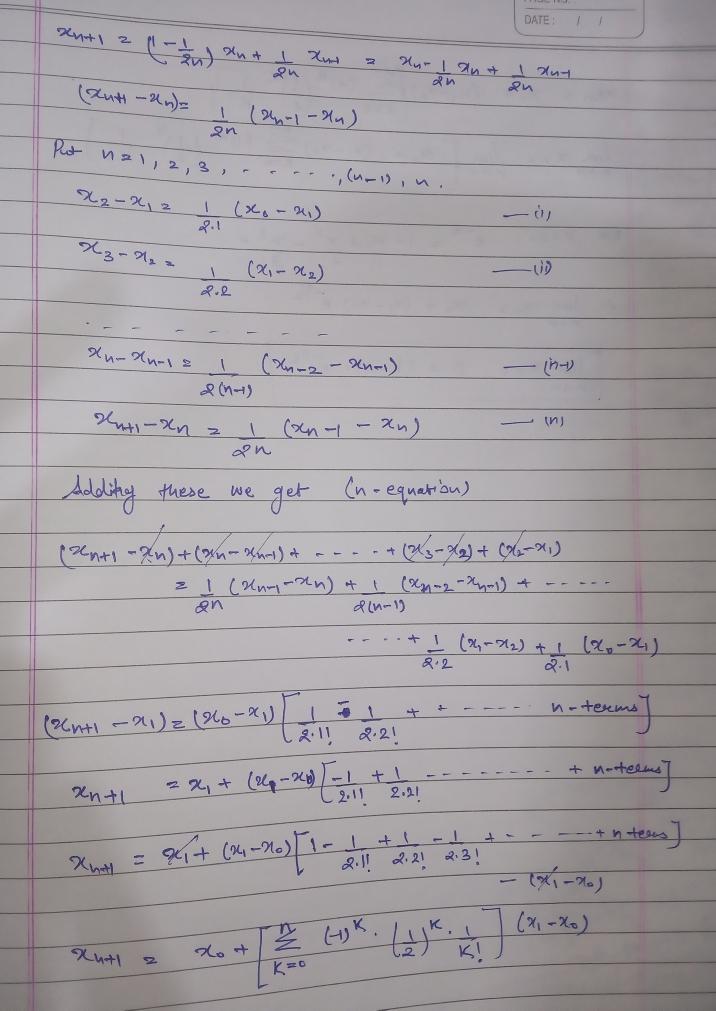 PAGE NO.
DATE: / /
xn+1 = (1 - 1/2n) xn + 1/2n xn-1 = xn - 1/2n xn + 1/2n xn-1
(xn+1 - xn) = 1/2n (xn-1 - xn)
Put n = 1, 2, 3, - - - - - ., (n-1), n.
x2 - x1 = 1/2.1 (x0 - x1) — (i)
x3 - x2 = 1/2.2 (x1 - x2) — (ii)
. - - - - - - -
xn - xn-1 = 1/2(n-1) (xn-2 - xn-1) — (n-1)
xn+1 - xn = 1/2n (xn-1 - xn) — (n)
Adding these we get (n-equation)
(xn+1 - xn) + (xn - xn-1) + - - - - - + (x3 - x2) + (x2 - x1)
= 1/2n (xn-1 - xn) + 1/2(n-1) (xn-2 - xn-1) + - - - - -
- - - - + 1/2.2 (x1 - x2) + 1/2.1 (x0 - x1)
(xn+1 - x1) = (x0 - x1) [1/2.1! - 1/2.2! + + - - - - - n-terms]
xn+1 = x1 + (x1 - x0) [-1/2.1! + 1/2.2! - - - - - - - - + n-terms]
xn+1 = x1 + (x1 - x0) [1 - 1/2.1! + 1/2.2! - 1/2.3! + - - - - + n terms]
- (x1 - x0)
xn+1 = x0 + [n Σ K=0 (-1)^K . (1/2)^K . 1/K!] (x1 - x0)